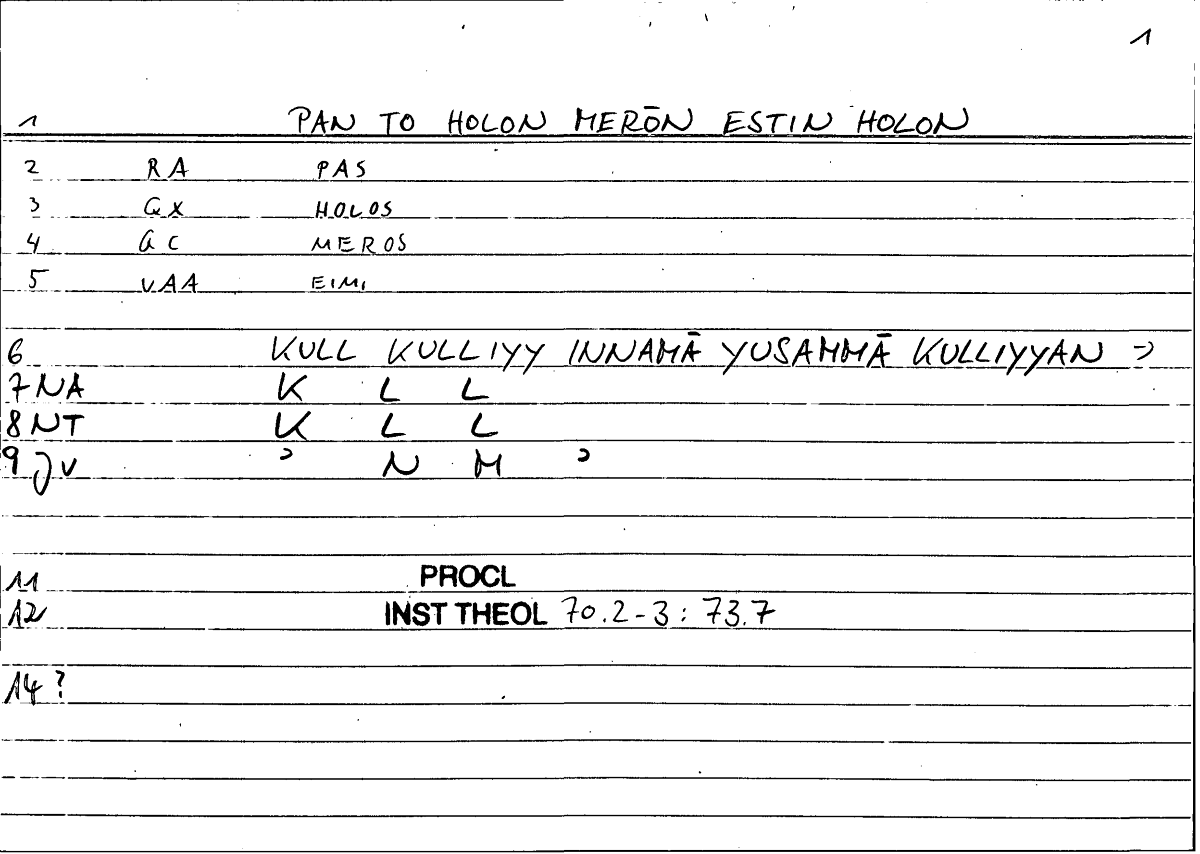 1
1 PAN TO HOLON MERŌN ESTIN HOLON
2 RA PAS
3 QX HOLOS
4 QC MEROS
5 VAA EIMI
6 KULL KULLIYY INNAMĀ YUSAMMĀ KULLIYYAN =>
7 NA K L L
8 NT K L L
9 JV ʾ N M ʾ
11 PROCL
12 INST THEOL 70.2-3 : 73.7
14 ?